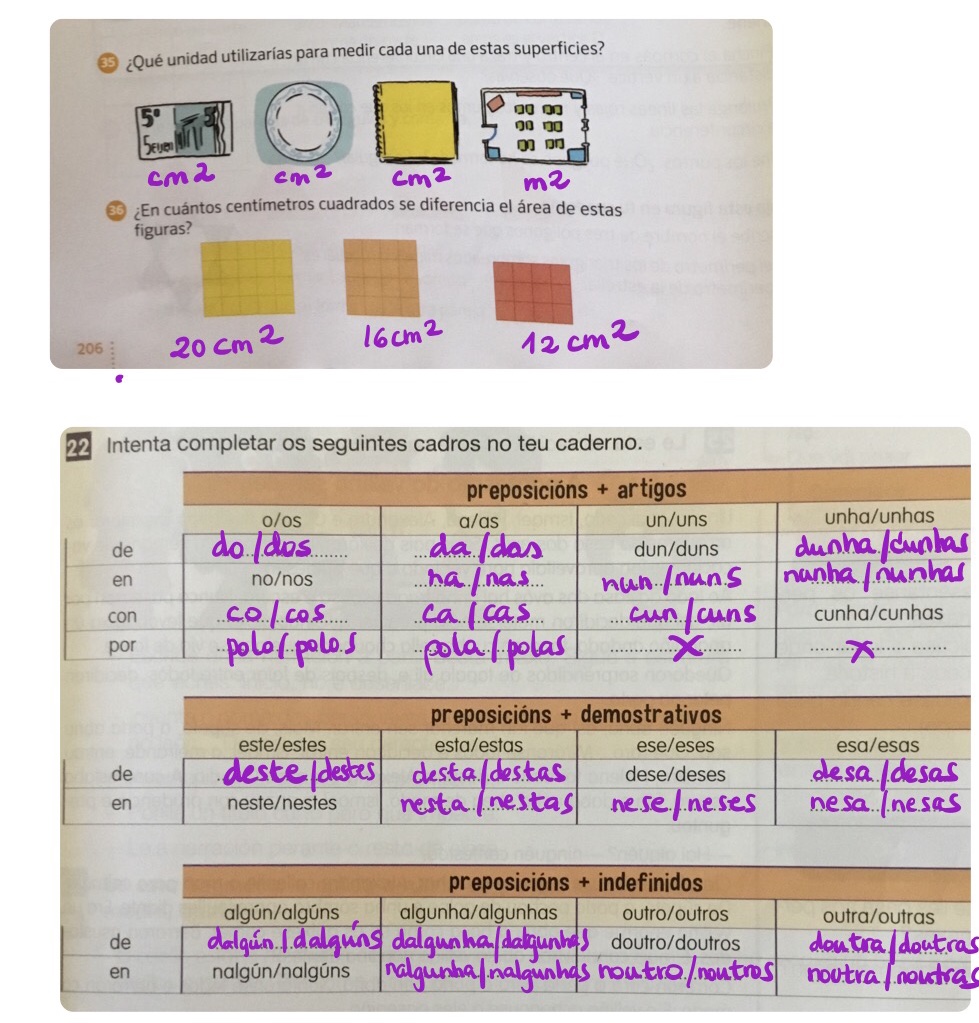 35 ¿Qué unidad utilizarías para medir cada una de estas superficies?
5º 5
5 euro
cm2 cm2 cm2 m2
36 ¿En cuántos centímetros cuadrados se diferencia el área de estas
figuras?
20 cm2 16 cm2 12 cm2
206
22 Intenta completar os seguintes cadros no teu caderno.
preposicións + artigos
o/os a/as un/uns unha/unhas
de do/dos da/das dun/duns dunha/dunhas
en no/nos na/nas nun/nuns nunha/nunhas
con co/cos ca/cas cun/cuns cunha/cunhas
por polo/polos pola/polas X X
preposicións + demostrativos
este/estes esta/estas ese/eses esa/esas
de deste/destes desta/destas dese/deses desa/desas
en neste/nestes nesta/nestas nese/neses nesa/nesas
preposicións + indefinidos
algún/algúns algunha/algunhas outro/outros outra/outras
de dalgún/dalgúns dalgunha/dalgunhas doutro/doutros doutra/doutras
en nalgún/nalgúns nalgunha/nalgunhas noutro/noutros noutra/noutras